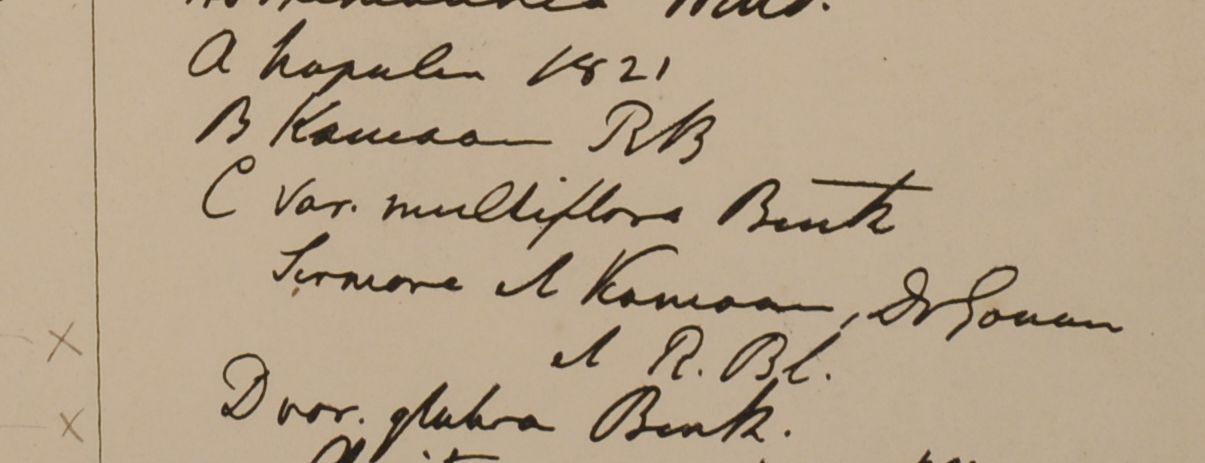 A Napalia 1821
B Kamaon RB
C var. multiflora Benth
Sirmore et Kamaon, Dr Govan
et R. Bl.
D var. glabra Benth.